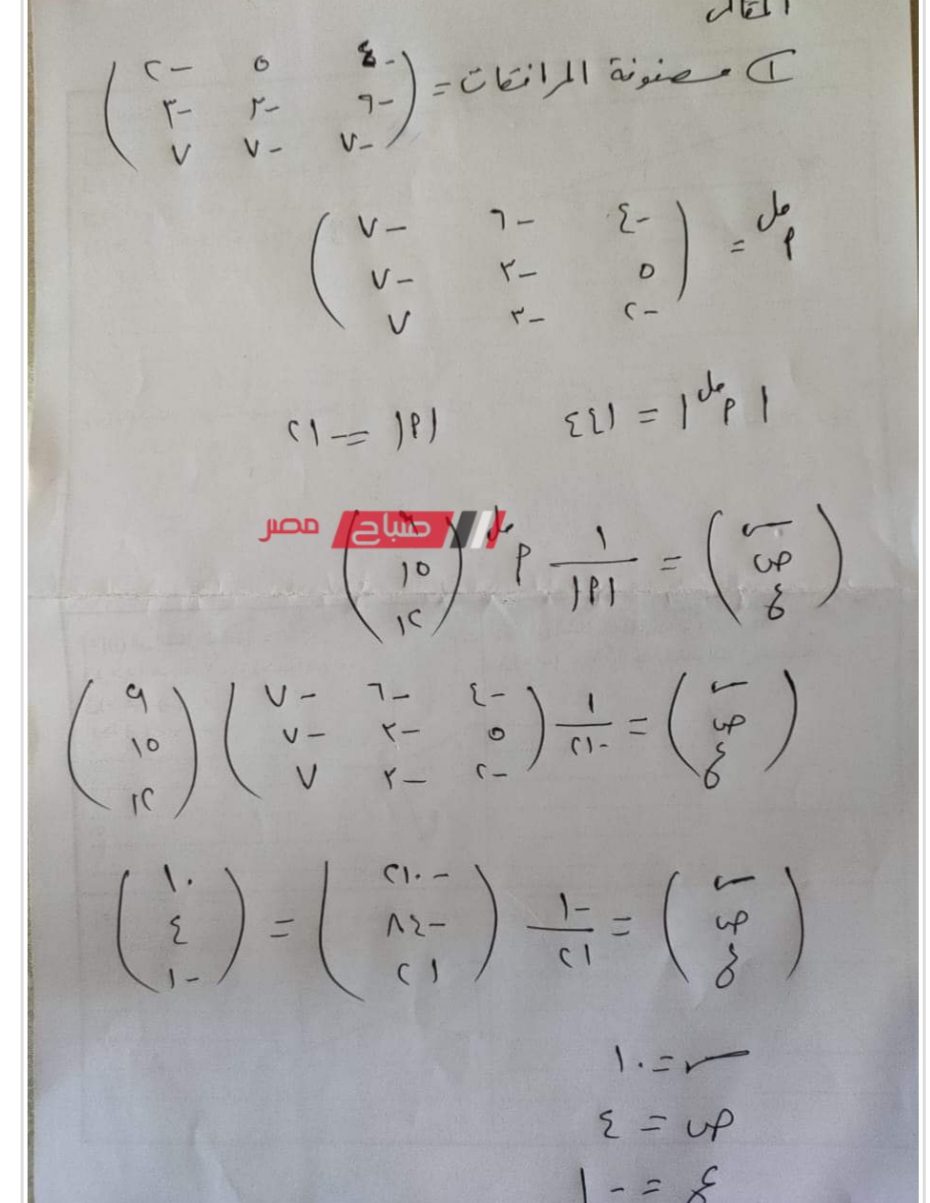 ١ مصفونة المرافقات = ( -٤ ٥ -٢
-٦ -٣ -٣
-٧ -٧ ٧ )
أ^مل = ( -٤ -٦ -٧
٥ -٣ -٧
-٢ -٣ ٧ )
|أ^مل| = ٤٤١ |أ| = -٢١
( س ص ع ) = ١/|أ| أ^مل ( ٩ ١٥ ١٢ )
صباح مصر
( س ص ع ) = ١/-٢١ ( -٤ -٦ -٧
٥ -٣ -٧
-٢ -٣ ٧ ) ( ٩ ١٥ ١٢ )
( س ص ع ) = -١/٢١ ( -٢١٠ -٨٤ ٢١ ) = ( ١٠ ٤ -١ )
س = ١٠
ص = ٤
ع = -١